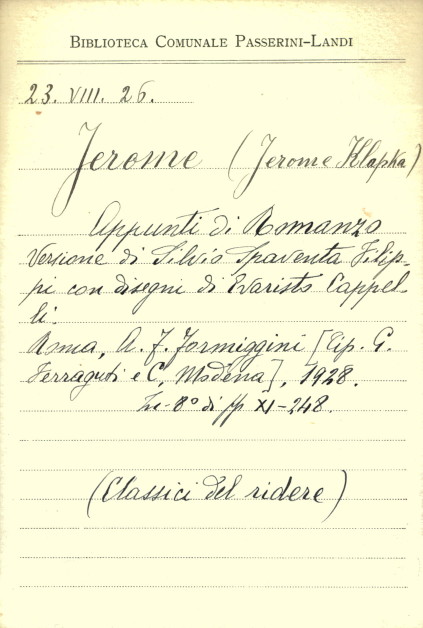 BIBLIOTECA COMUNALE PASSERINI-LANDI
23. VIII. 26.
Jerome (Jerome Klapka)
Appunti di Romanzo
Versione di Silvio Spaventa Filip-
pi con disegni di Evaristo Cappel-
li.
Roma, A. F. Formiggini [Tip. G.
Ferraguti e C, Modena], 1928.
In-8° di pp XI-248.
(Classici del ridere)